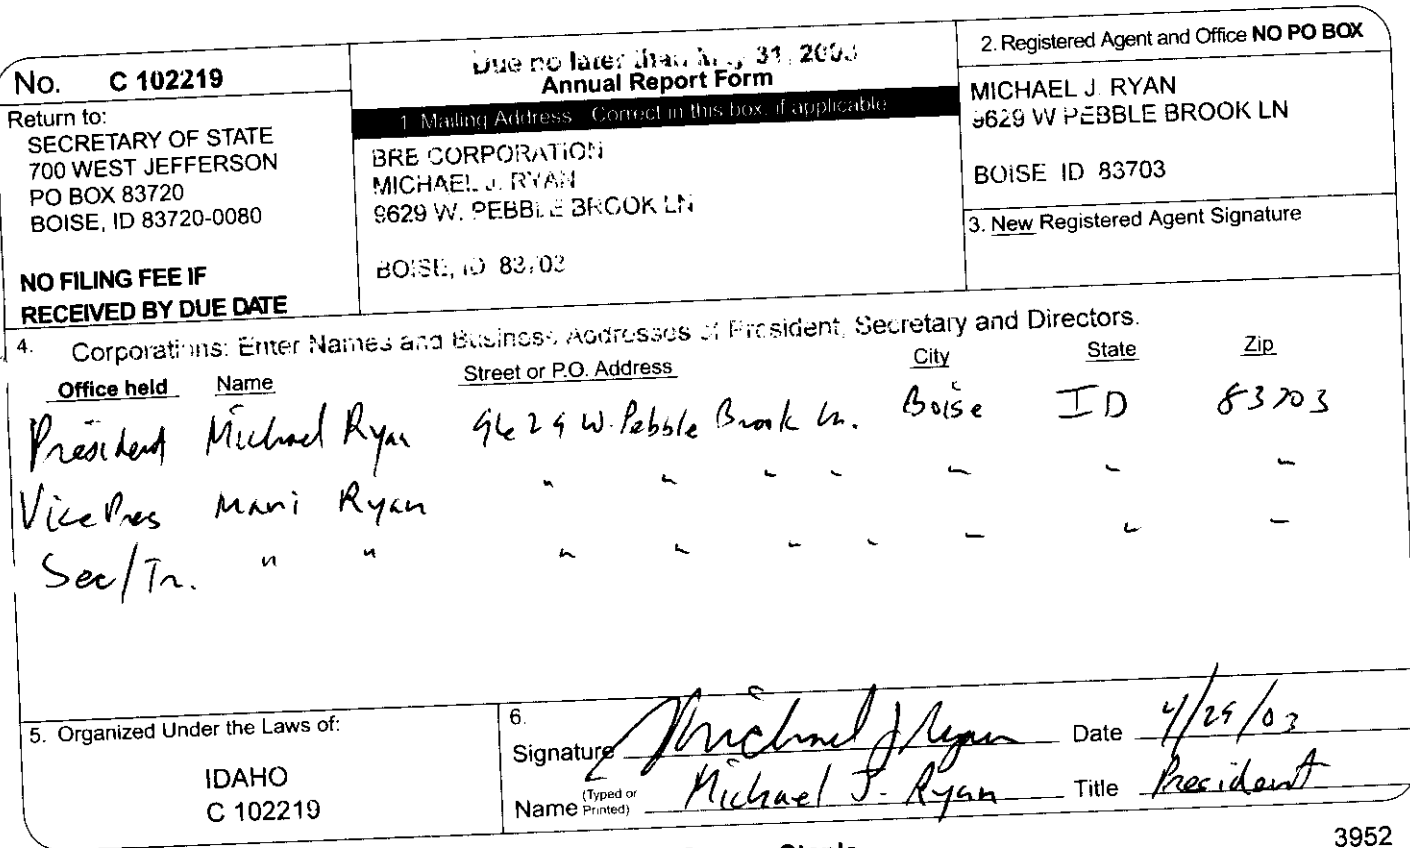 No. C 102219
Return to:
SECRETARY OF STATE
700 WEST JEFFERSON
PO BOX 83720
BOISE, ID 83720-0080
NO FILING FEE IF
RECEIVED BY DUE DATE
Due no later than 31, 2003
Annual Report Form
1. Mailing Address Correct in this box, if applicable
BRE CORPORATION
MICHAEL J. RYAN
9629 W. PEBBLE BROOK LN
BOISE, ID 83703
2. Registered Agent and Office NO PO BOX
MICHAEL J. RYAN
9629 W PEBBLE BROOK LN
BOISE ID 83703
3. New Registered Agent Signature
4. Corporations: Enter Names and Business Addresses of President, Secretary and Directors.
Office held Name Street or P.O. Address City State Zip
President Michael Ryan 9629 W. Pebble Brook Ln. Boise ID 83703
Vice Pres Mari Ryan " " " " " " "
Sec/Tr. " " " " " " " " "
5. Organized Under the Laws of:
IDAHO
C 102219
6.
Signature Michael J Ryan Date 4/29/03
Name (Typed or Printed) Michael J. Ryan Title President
3952